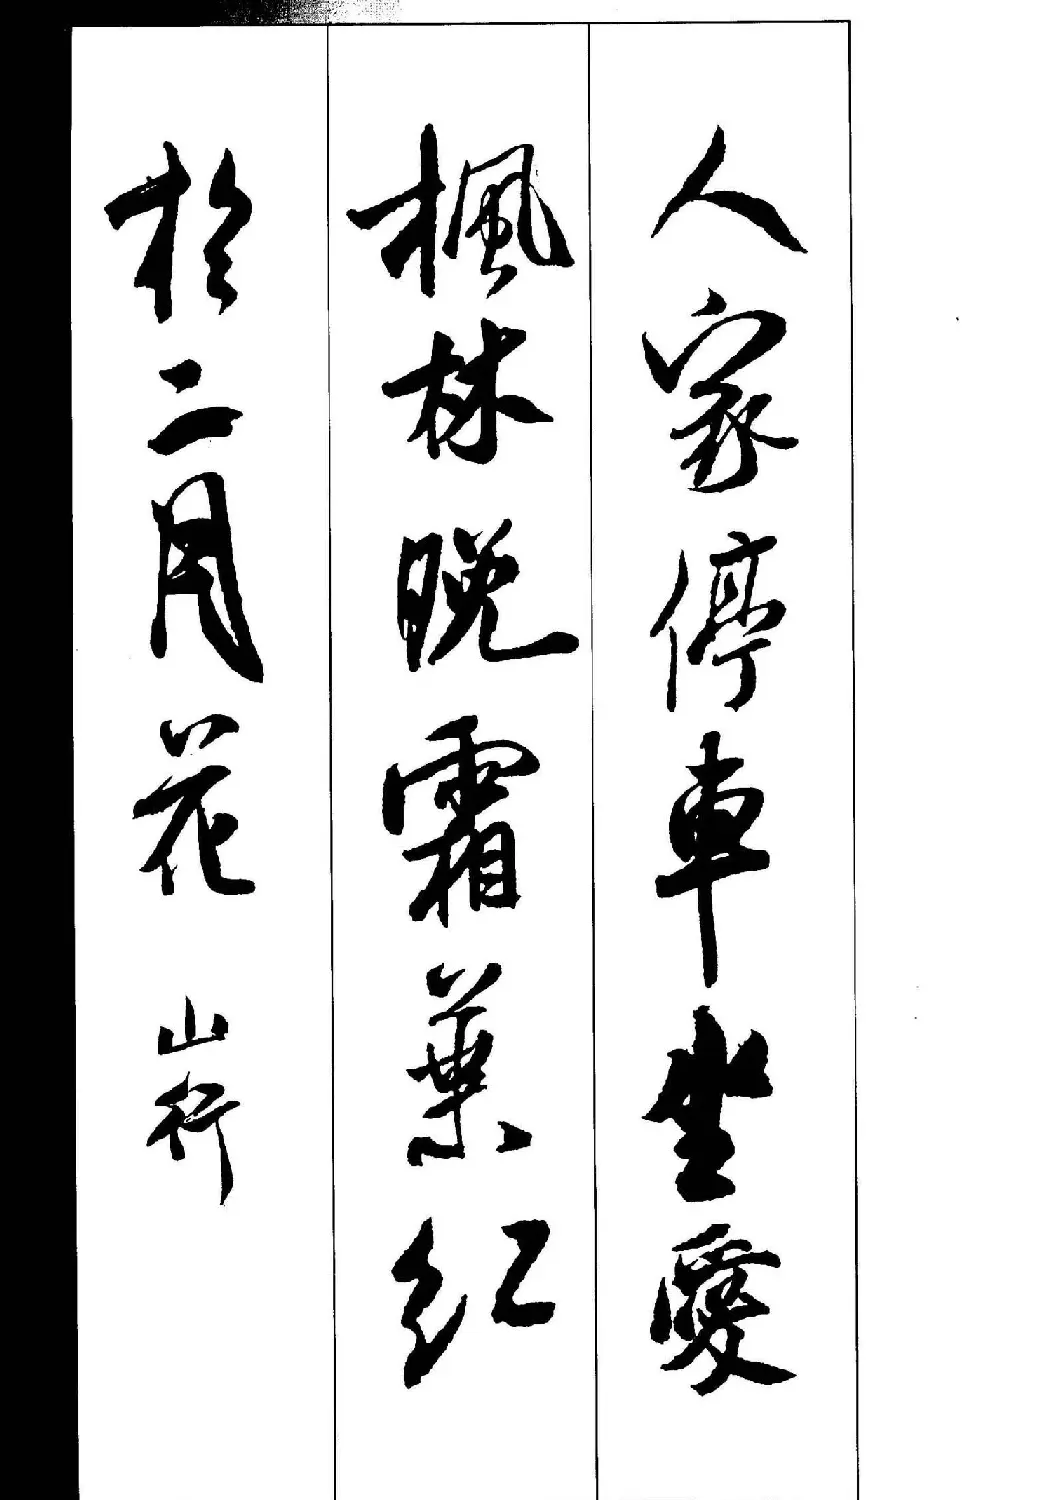 人家停車坐愛
楓林晚霜葉紅
於二月花 山行